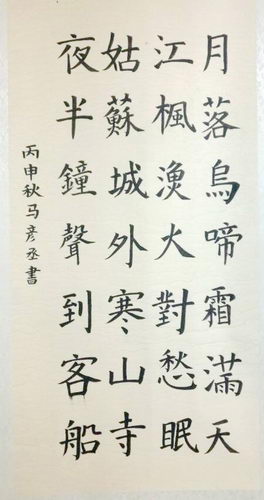 月落烏啼霜滿天
江楓漁火對愁眠
姑蘇城外寒山寺
夜半鐘聲到客船
丙申秋马彦丞書